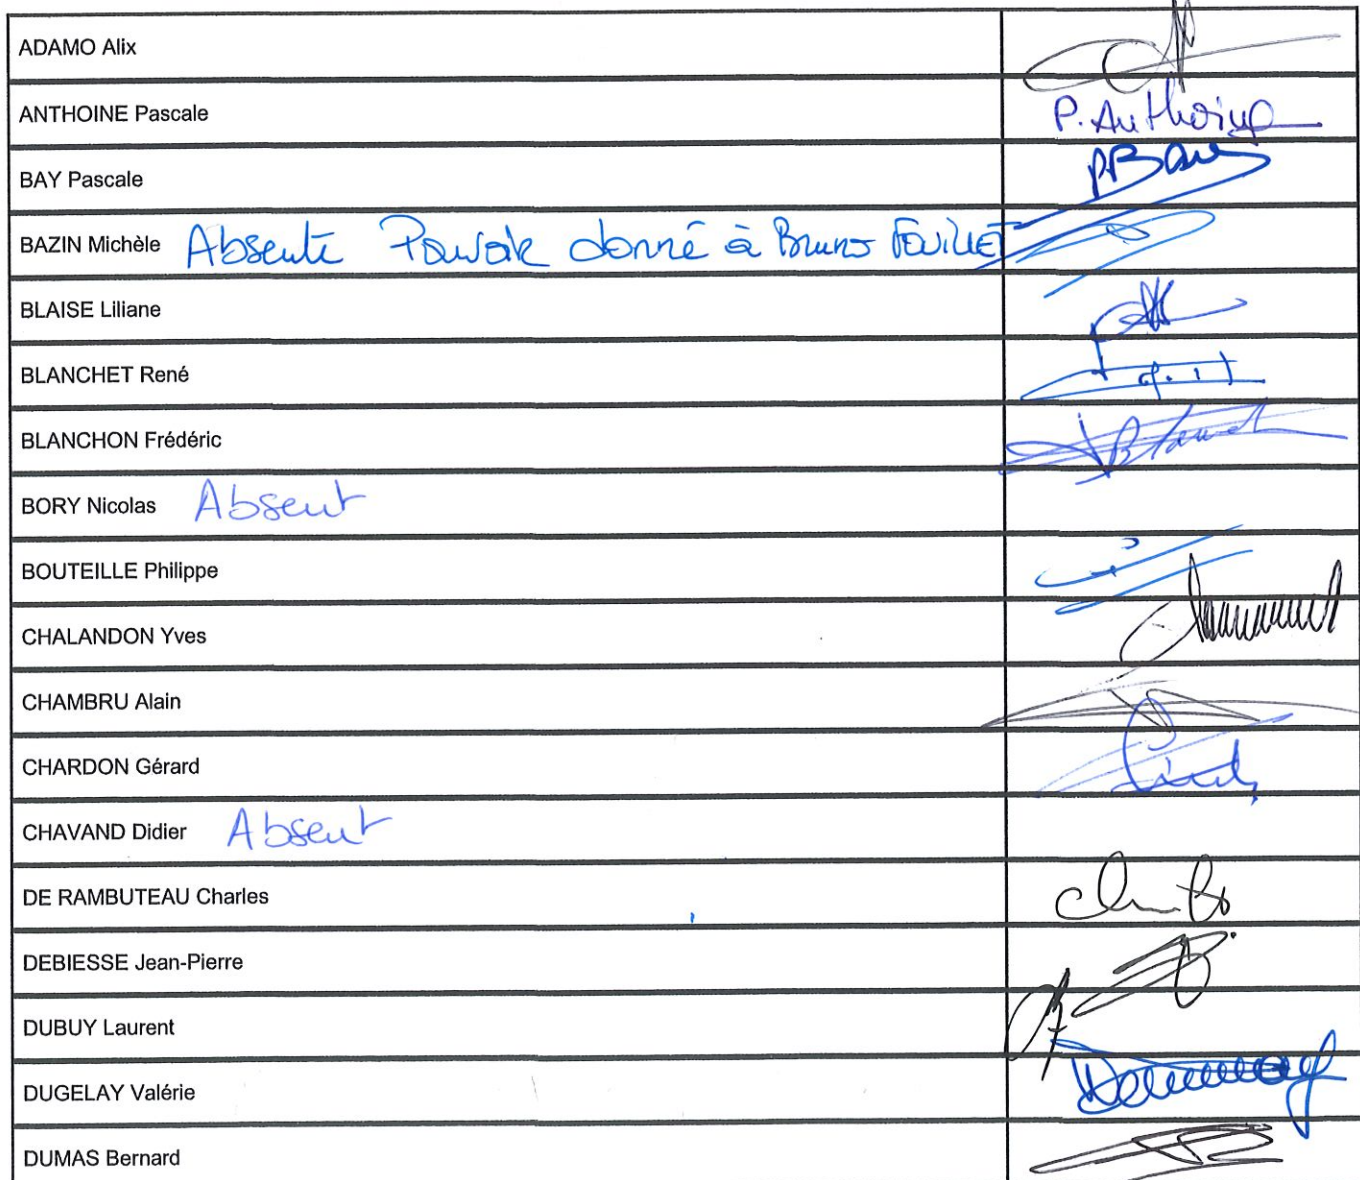 ADAMO Alix
ANTHOINE Pascale P. Anthoine
BAY Pascale PBay
BAZIN Michèle Absente Pouvoir donné à Bruno FOUILLET
BLAISE Liliane
BLANCHET René
BLANCHON Frédéric
BORY Nicolas Absent
BOUTEILLE Philippe
CHALANDON Yves
CHAMBRU Alain
CHARDON Gérard
CHAVAND Didier Absent
DE RAMBUTEAU Charles
DEBIESSE Jean-Pierre
DUBUY Laurent
DUGELAY Valérie
DUMAS Bernard